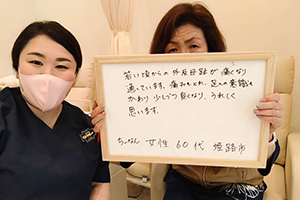 若い頃からの外反母趾が痛くなり
通っています。痛みもとれ、足への意識も
かわり 少しづつ良くなり、うれしく
思います。
女性 60代 姫路市